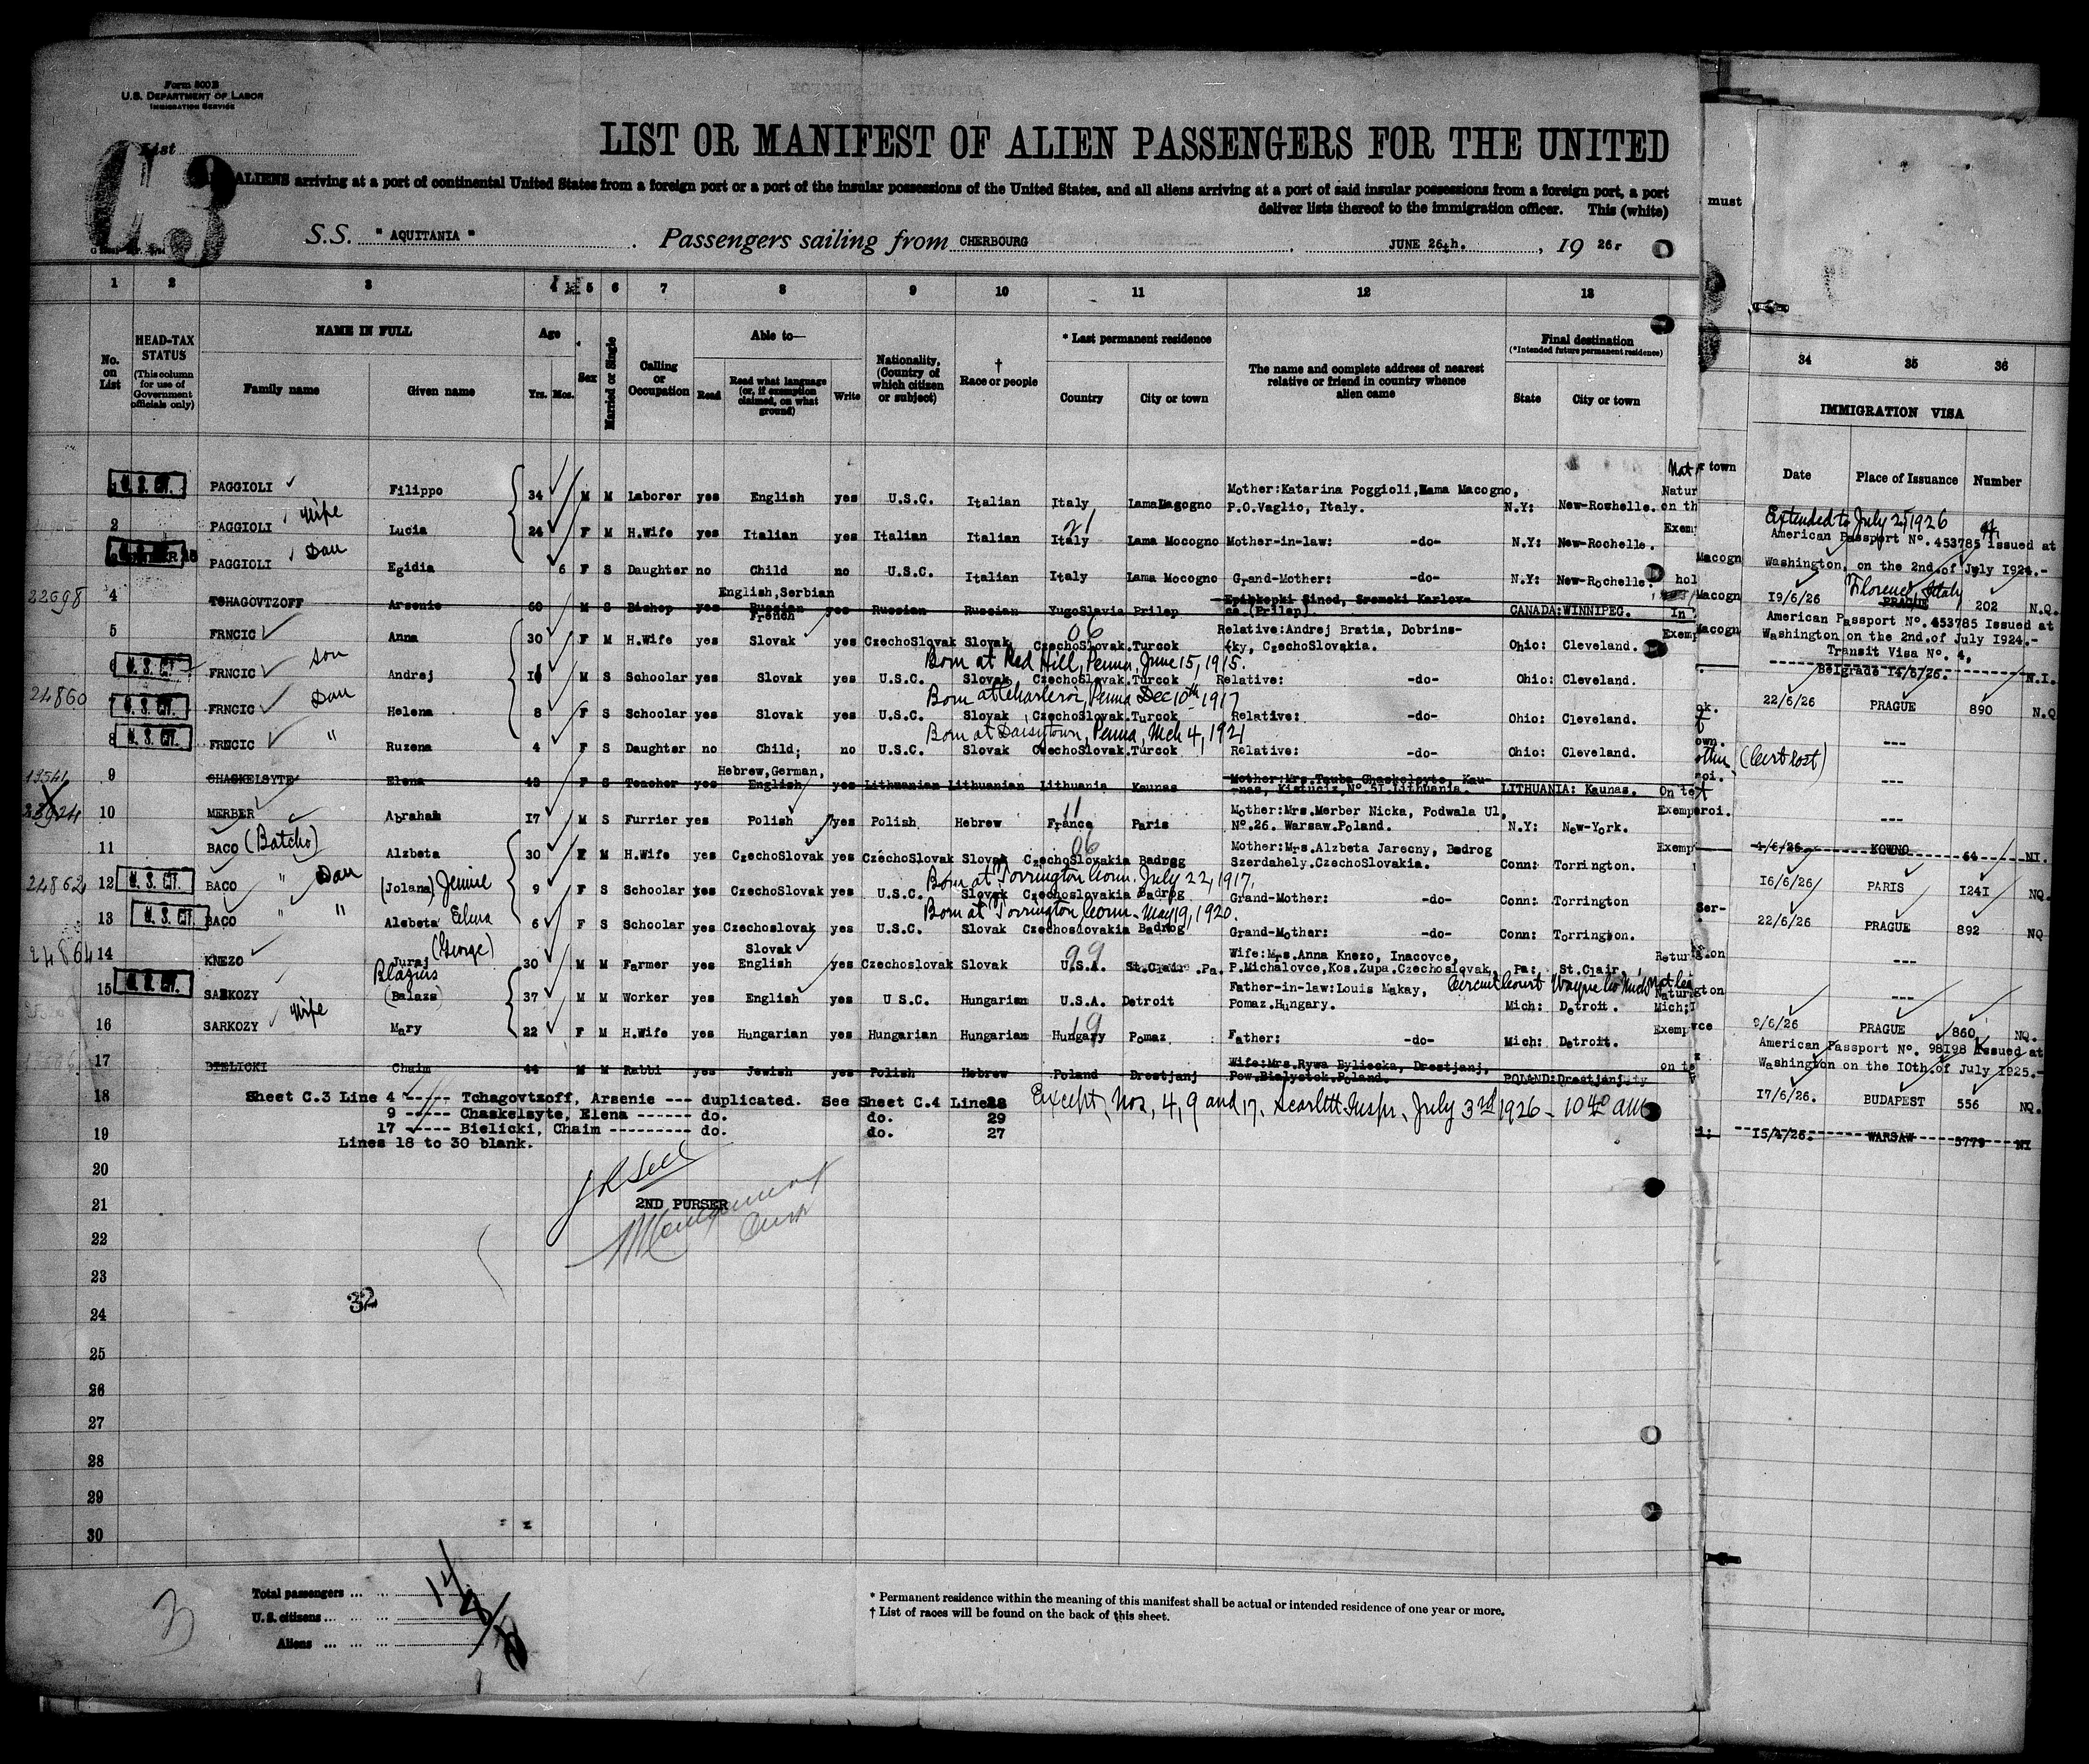 Form 500 B
U.S. DEPARTMENT OF LABOR
IMMIGRATION SERVICE
List
C.3
LIST OR MANIFEST OF ALIEN PASSENGERS FOR THE UNITED
ALIENS arriving at a port of continental United States from a foreign port or a port of the insular possessions of the United States, and all aliens arriving at a port of said insular possessions from a foreign port, a port
deliver lists thereof to the immigration officer. This (white)
must
S.S. "AQUITANIA" Passengers sailing from CHERBOURG JUNE 26th. , 19 26
1 2 3 4 5 6 7 8 9 10 11 12 13
34 35 36
No. on List
HEAD-TAX STATUS (This column for use of Government officials only)
NAME IN FULL
Family name Given name
Age Yrs. Mos.
Sex
Married or Single
Calling or Occupation
Able to—
Read Read what language (or, if exemption claimed, on what ground) Write
Nationality, (Country of which citizen or subject)
† Race or people
* Last permanent residence
Country City or town
The name and complete address of nearest relative or friend in country whence alien came
Final destination (*Intended future permanent residence)
State City or town
IMMIGRATION VISA
Date Place of Issuance Number
U.S. CIT. PAGGIOLI Filippo 34 M M Laborer yes English yes U.S.C. Italian Italy Mother:Katarina Poggioli, Lama Macogno, P.O.Vaglio, Italy. N.Y: New-Rochelle.
2 PAGGIOLI wife Lucia 24 F M H.Wife yes Italian yes Italian Italian Italy 21 Lama Mocogno Mother-in-law: -do- N.Y: New-Rochelle.
PAGGIOLI Dau Egidia 6 F S Daughter no Child no U.S.C. Italian Italy Lama Mocogno Grand-Mother: -do- N.Y: New-Rochelle.
4 TCHAGOVTZOFF Arsenie 60 M S Bishop yes English,Serbian Russian French yes Russian Russian YugoSlavia Prilep Sined, Sremski Karlov- (Prilep) CANADA:WINNIPEG.
5 FRNCIC Anna 30 F M H.Wife yes Slovak yes CzechoSlovak Slovak CzechoSlovak. Turcok 06 Relative:Andrej Bratia, Dobrins- ky, CzechoSlovakia. Ohio: Cleveland.
Born at Red Hill, Penna, June 15, 1915.
U.S. CIT. FRNCIC son Andrej M S Schoolar yes Slovak yes U.S.C. Slovak CzechoSlovak. Turcok Relative: -do- Ohio: Cleveland.
24860
Born at Charleroi, Penna Dec 10th 1917
7 U.S. CIT. FRNCIC Dau Helena 8 F S Schoolar yes Slovak yes U.S.C. Slovak CzechoSlovak. Turcok Relative: -do- Ohio: Cleveland.
Born at Daisytown, Penna, Mch 4, 1921
8 U.S. CIT. FRNCIC " Ruzena 4 F S Daughter no Child; no U.S.C. Slovak CzechoSlovak. Turcok Relative: -do- Ohio: Cleveland.
9 CHASKELSYTE Elena 43 F S Teacher yes Hebrew,German, English yes Lithuanian Lithuanian Lithuania Kaunas Mother:Mrs.Tauba Chaskelsyte, Kau- nas, No 51 Lithuania. LITHUANIA: Kaunas.
10 MERBER Abraham 17 M S Furrier yes Polish yes Polish Hebrew France 11 Paris Mother:Mrs.Merber Nicka, Podwala Ul, No.26. Warsaw.Poland. N.Y: New-York.
11 BACO (Batcho) Alzbeta 30 F M H.Wife yes CzechoSlovak yes CzechoSlovak Slovak CzechoSlovakia Badrog 06 Mother:Mrs.Alzbeta Jarecny, Bodrog Szerdahely.CzechoSlovakia. Conn: Torrington.
Born at Torrington Conn. July 22, 1917.
24862 12 U.S. CIT. BACO " Dau (Jolana) Jennie 9 F S Schoolar yes CzechoSlovak yes U.S.C. Slovak Czechoslovakia Badrog Grand-Mother: -do- Conn: Torrington
Born at Torrington Conn. May 19, 1920.
13 U.S. CIT. BACO " " Alsbeta 6 F S Schoolar yes Czechoslovak yes U.S.C. Slovak Czechoslovakia Badrog Grand-Mother: -do- Conn: Torrington.
24864 14 KNEZO Juraj (George) 30 M M Farmer yes Slovak English yes Czechoslovak Slovak U.S.A. 99 St.Claire .Pa. Wife:Mrs.Anna Knezo, Inacovce, P.Michalovce,Kos.Zupa.Czechoslovak, Pa: St.Clair.
15 U.S. CIT. SARKOZY Blazius (Balazs) 37 M M Worker yes English yes U S.C. Hungarian U.S.A. Detroit Father-in-law:Louis Makay, Pomaz.Hungary. Circuit Court Wayne Co Mich Mich: Detroit.
16 SARKOZY wife Mary 22 F M H.Wife yes Hungarian yes Hungarian Hungarian Hungary 19 Pomaz Father: -do- Mich: Detroit.
17 BIELICKI Chaim 44 M M Rabbi yes Jewish yes Polish Hebrew Poland Drestjanj Wife:Mrs.Rywa Byliecka, Drestjanj, Pow.Bialystok.Poland. POLAND:Drestjanj
18 Sheet C.3 Line 4 ----- Tchagovtzoff, Arsenie --- duplicated. See Sheet C.4 Lines 28
9 ----- Chaskelsyte, Elena ------ do. do. 29
17 ----- Bielicki, Chaim --------- do. do. 27
Except Nos, 4, 9 and 17. Scarlett Inspr. July 3rd 1926 - 10 40 AM
19 Lines 18 to 30 blank.
20
21 2ND PURSER
22
23
24 32
25
26
27
28
29
30
Extended to July 2, 1926
American Passport No. 453785 Issued at
Washington, on the 2nd.of July 1924.-
19/6/26 Florence, Italy PRAGUE 202 N.Q.
American Passport No. 453785 Issued at
Washington on the 2nd.of July 1924.-
Transit Visa No. 4,
Belgrade 14/6/26. N.I.
22/6/26 PRAGUE 890 N.Q
---
(Cert lost)
---
---
4/6/26 KOWNO 64 NI.
16/6/26 PARIS 1241 NQ.
22/6/26 PRAGUE 892 NQ
---
---
9/6/26 PRAGUE 860 NQ.
American Passport No. 98198 Issued at
Washington on the 10th.of July 1925.-
17/6/26. BUDAPEST 556 NQ.
15/4/26. WARSAW 3779 NI
Total passengers
U.S. citizens
Aliens
* Permanent residence within the meaning of this manifest shall be actual or intended residence of one year or more.
† List of races will be found on the back of this sheet.